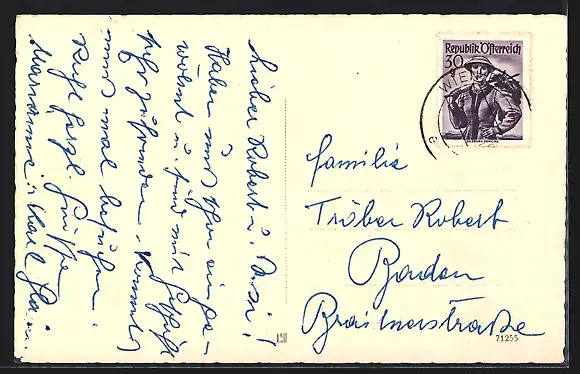 Lieber Robert u. Resi!
Haben uns schon einge-
wöhnt u. sind mit
sehr zufrieden. Kommt
uns mal besuchen.
Recht herzl. Grüße
Marianne u. Karl
Familie
Tröber Robert
Baden
Republik Österreich
30
WIEN
71255